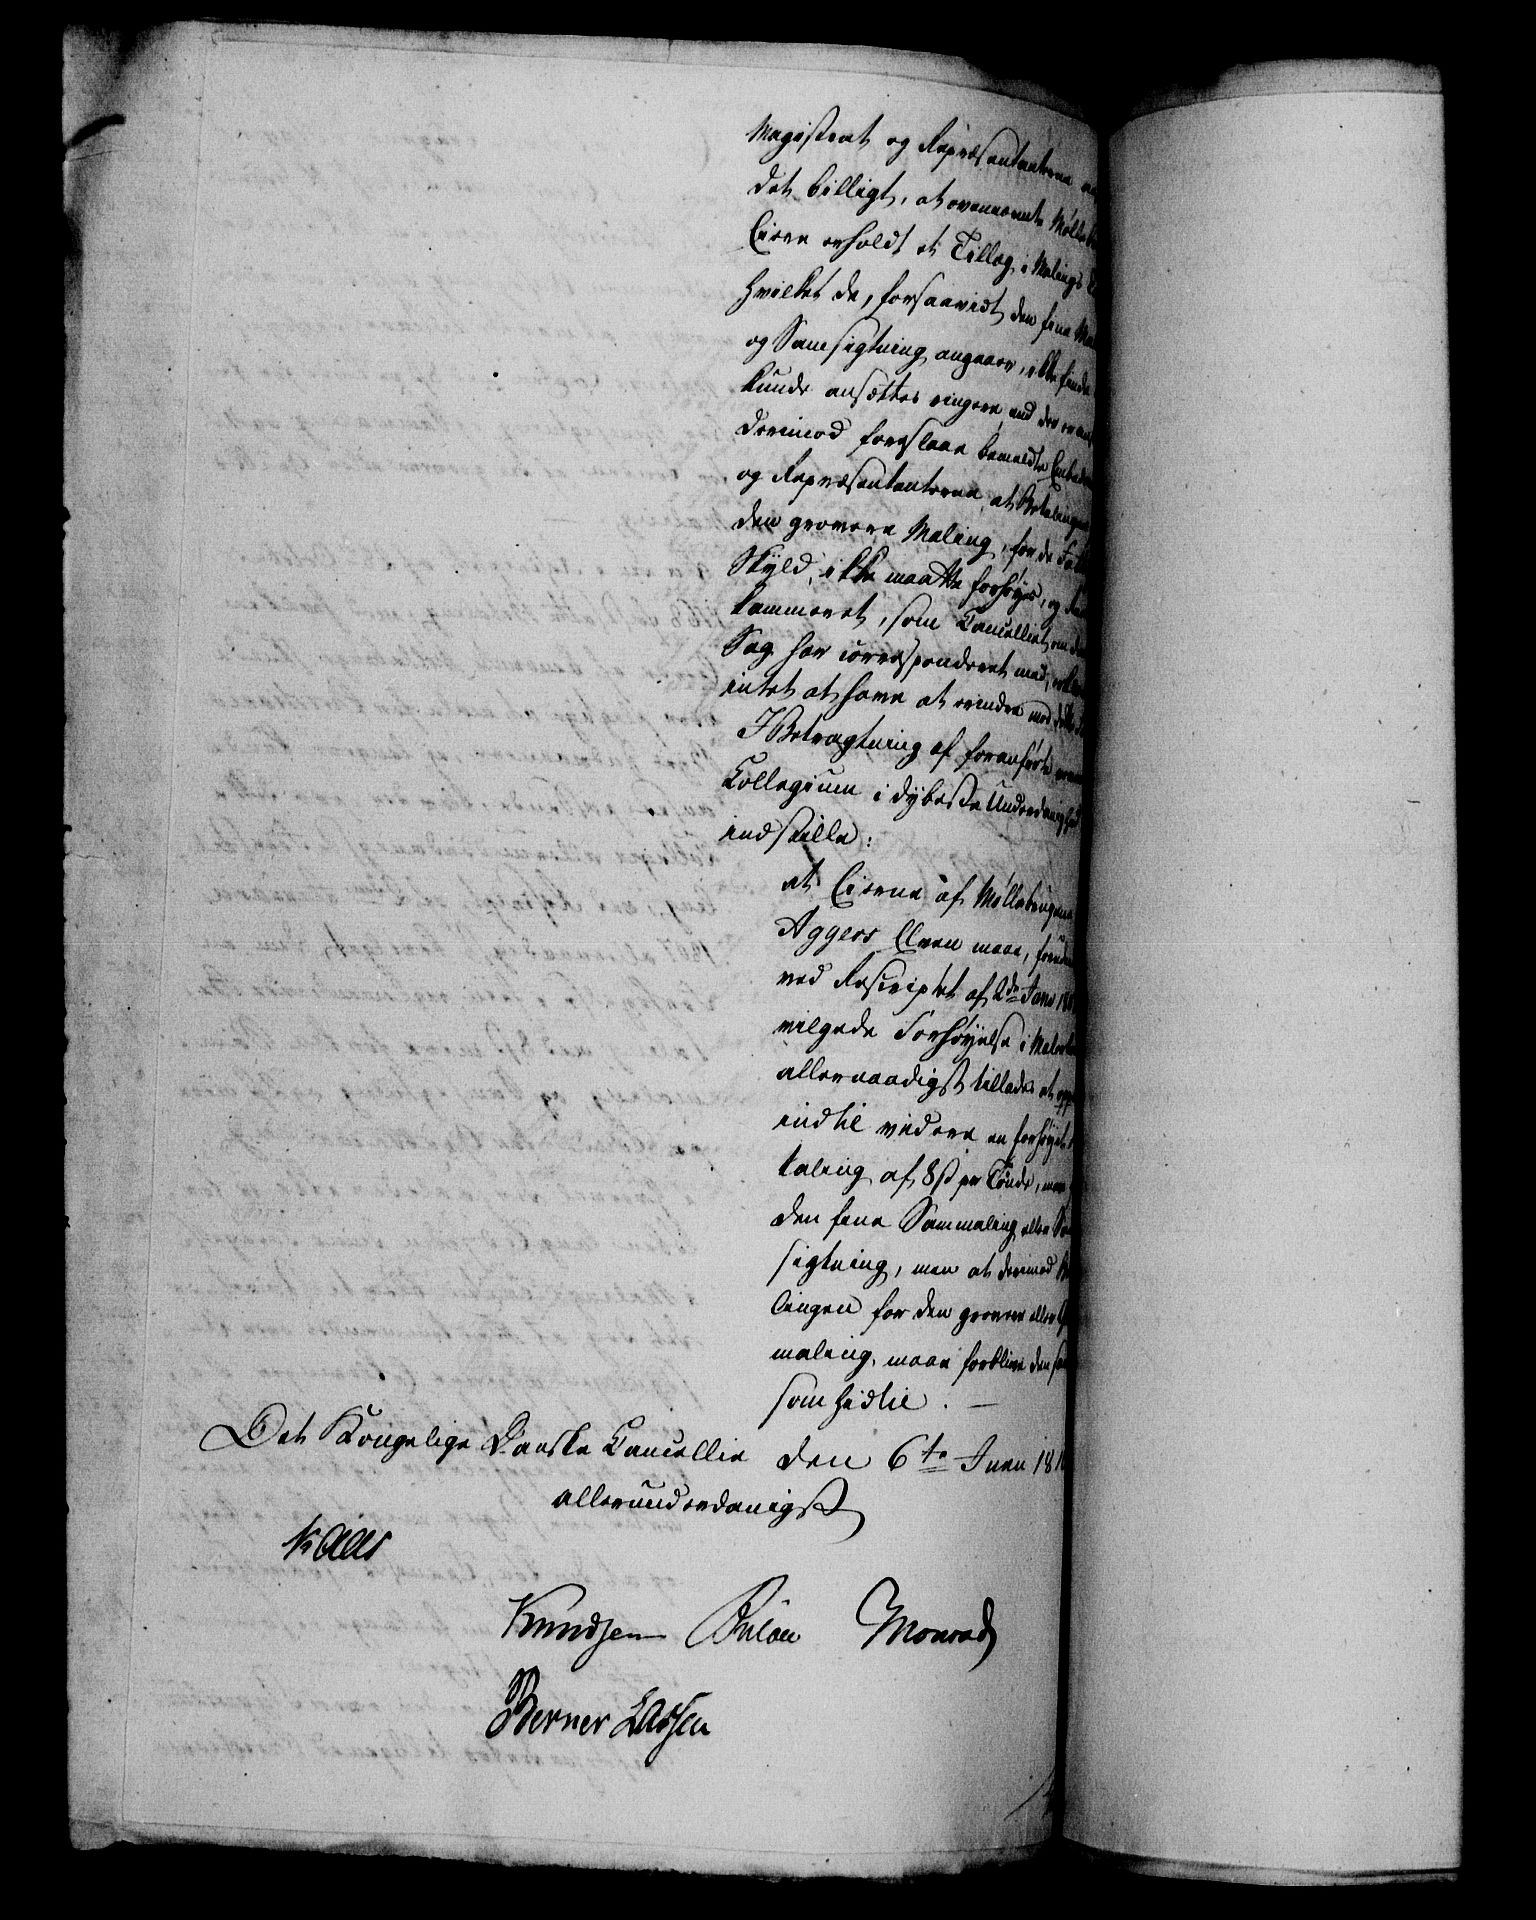 Magistrat og Repræsentanterne
det billigt, at ovennævnte Mølle
Eiere erholdt et Tillæg i Malings
hvilket de, forsaavidt den fine
og Samsigtning angaaer, ikke finde
kunde ansættes ringere end
derimod foreslaae bemeldte
og Repræsentanterne, at Betalingen
den grovere Maling, for de
Skyld, ikke maatte forhøjes, og
kammeret, som Cancelliet om
Sag har corresponderet med,
intet at have at erindre mod dette
I Betragtning af foranførte
Collegium i dybeste Underdanighed
indstille:
at Eierne af Møllebrugene
Aggers Elven maae, foruden
ved Rescriptet af 2den Janr
vilgede Forhøyelse i
allernaadigst tillades at
indtil videre en forhøyet
taling af 8 ß pr Tønde,
den fine Sammaling eller
sigtning, men at derimod
lingen for den grovere eller
maling, maae forblive den
som hidtil. —
Det Kongelige Danske Cancellie den 6te Juni 18
allerunderdanigst
Kaas
Knudsen Bülow Monrad
Berner Lassen